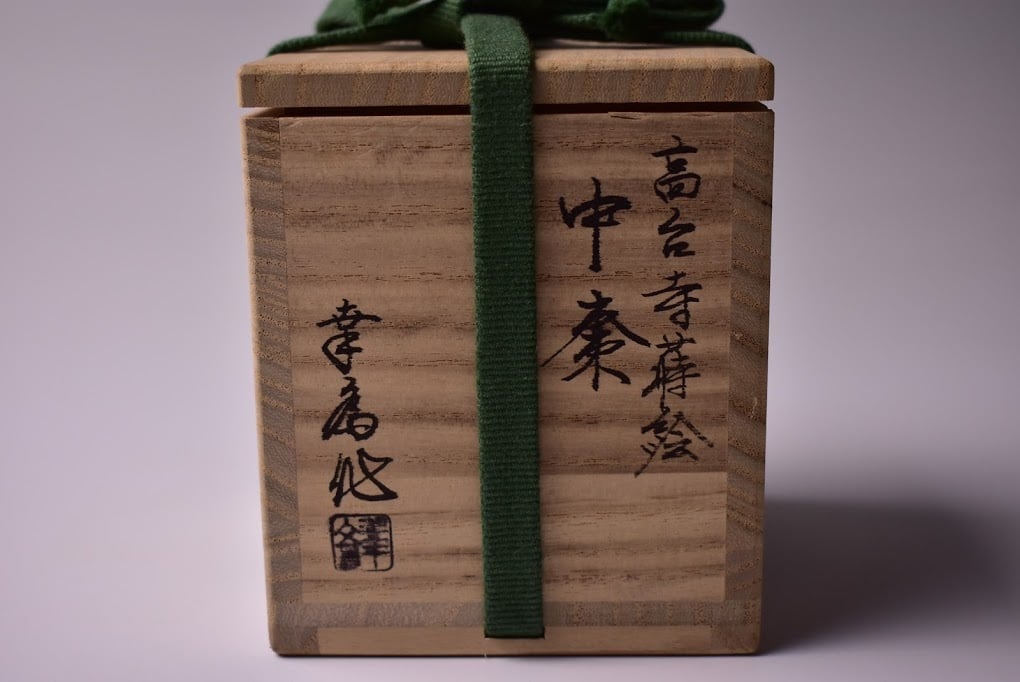 高台寺蒔絵
中棗
幸斎作